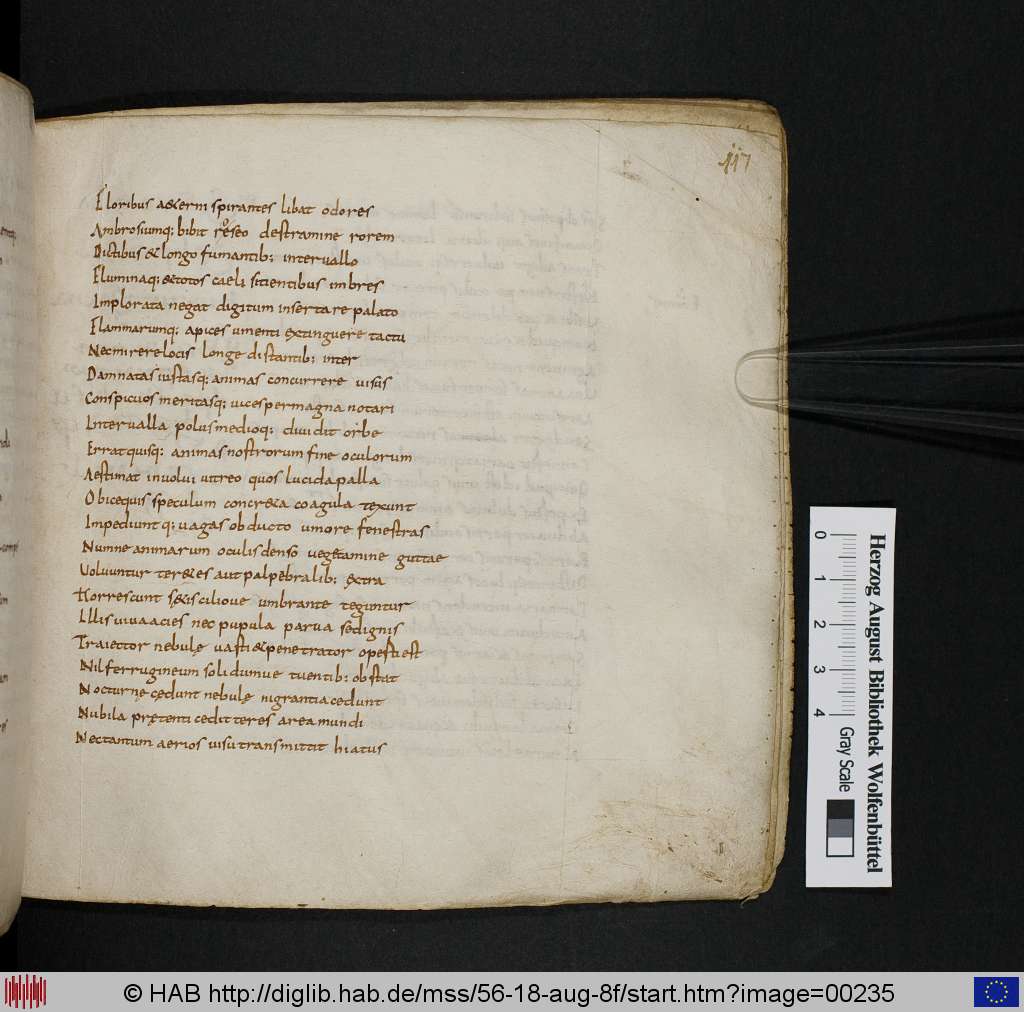 117
Floribus a&erni spirantes libat odores
Ambrosiumq: bibit roseo destramine rorem
Ditibus &longo fumantib; intervallo
Fluminaq: &totos caeli sitientibus imbres
Implorata negat digitum insertare palato
Flammarumq; apices umenti extinguere tactu
Necmirerelocis longe distantib; inter
Damnatas iustasq; animas concurrere visus
Conspicuos meritasq; vices per magna notari
Intervalla polus medioq; dividit orbe
Errat quisq; animas nostrorum fine oculorum
Aestimat involui vitreo quos lucida palla
Obice quis speculum concr&a coagula texunt
Impediuntq; vagas obducto umore fenestras
Numne animarum oculis denso vegetamine guttae
Voluuntur ter&es aut palpebralib; extra
Horrescunt s&is ciliove umbrante teguntur
Illis viva acies nec pupula parva sed ignis
Traiector nebulę vasti &penetrator operti est
Nil ferrugineum solidumve tuentib; obstat
Nocturnę cedunt nebulę nigrantia cedunt
Nubila prętenti cedit teres area mundi
Nec tantum aerios visu transmittit hiatus
Herzog August Bibliothek Wolfenbüttel
0 1 2 3 4 Gray Scale
© HAB http://diglib.hab.de/mss/56-18-aug-8f/start.htm?image=00235